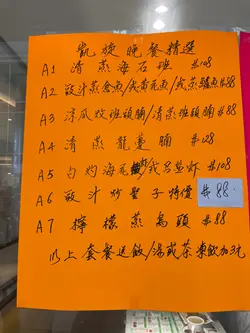 凱旋晚餐精選
A1 清蒸海石班 $108
A2 豉汁蒸倉魚/或黃花魚/或蒸鱸魚$88
A3 涼瓜炆班頭腩/清蒸班頭腩$88
A4 清蒸龍躉腩 $128
A5 白灼海花蝦/或呂塩炸 $108
A6 豉汁炒聖子特價 $88.
A7 檸檬蒸烏頭 $88
以上套餐送飯/湯或茶 凍飲加3元